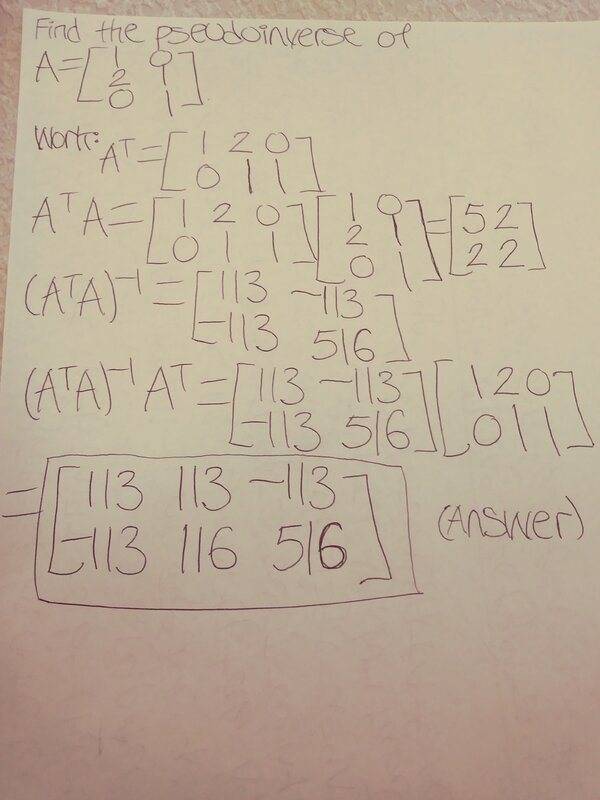 Find the pseudoinverse of
A=[1 0
2 1
0 1].
Work: Aᵀ=[1 2 0
0 1 1]
AᵀA=[1 2 0
0 1 1][1 0
2 1
0 1]=[5 2
2 2]
(AᵀA)⁻¹=[1/3 -1/3
-1/3 5/6]
(AᵀA)⁻¹Aᵀ=[1/3 -1/3
-1/3 5/6][1 2 0
0 1 1]
=[1/3 1/3 -1/3
-1/3 1/6 5/6]
(Answer)